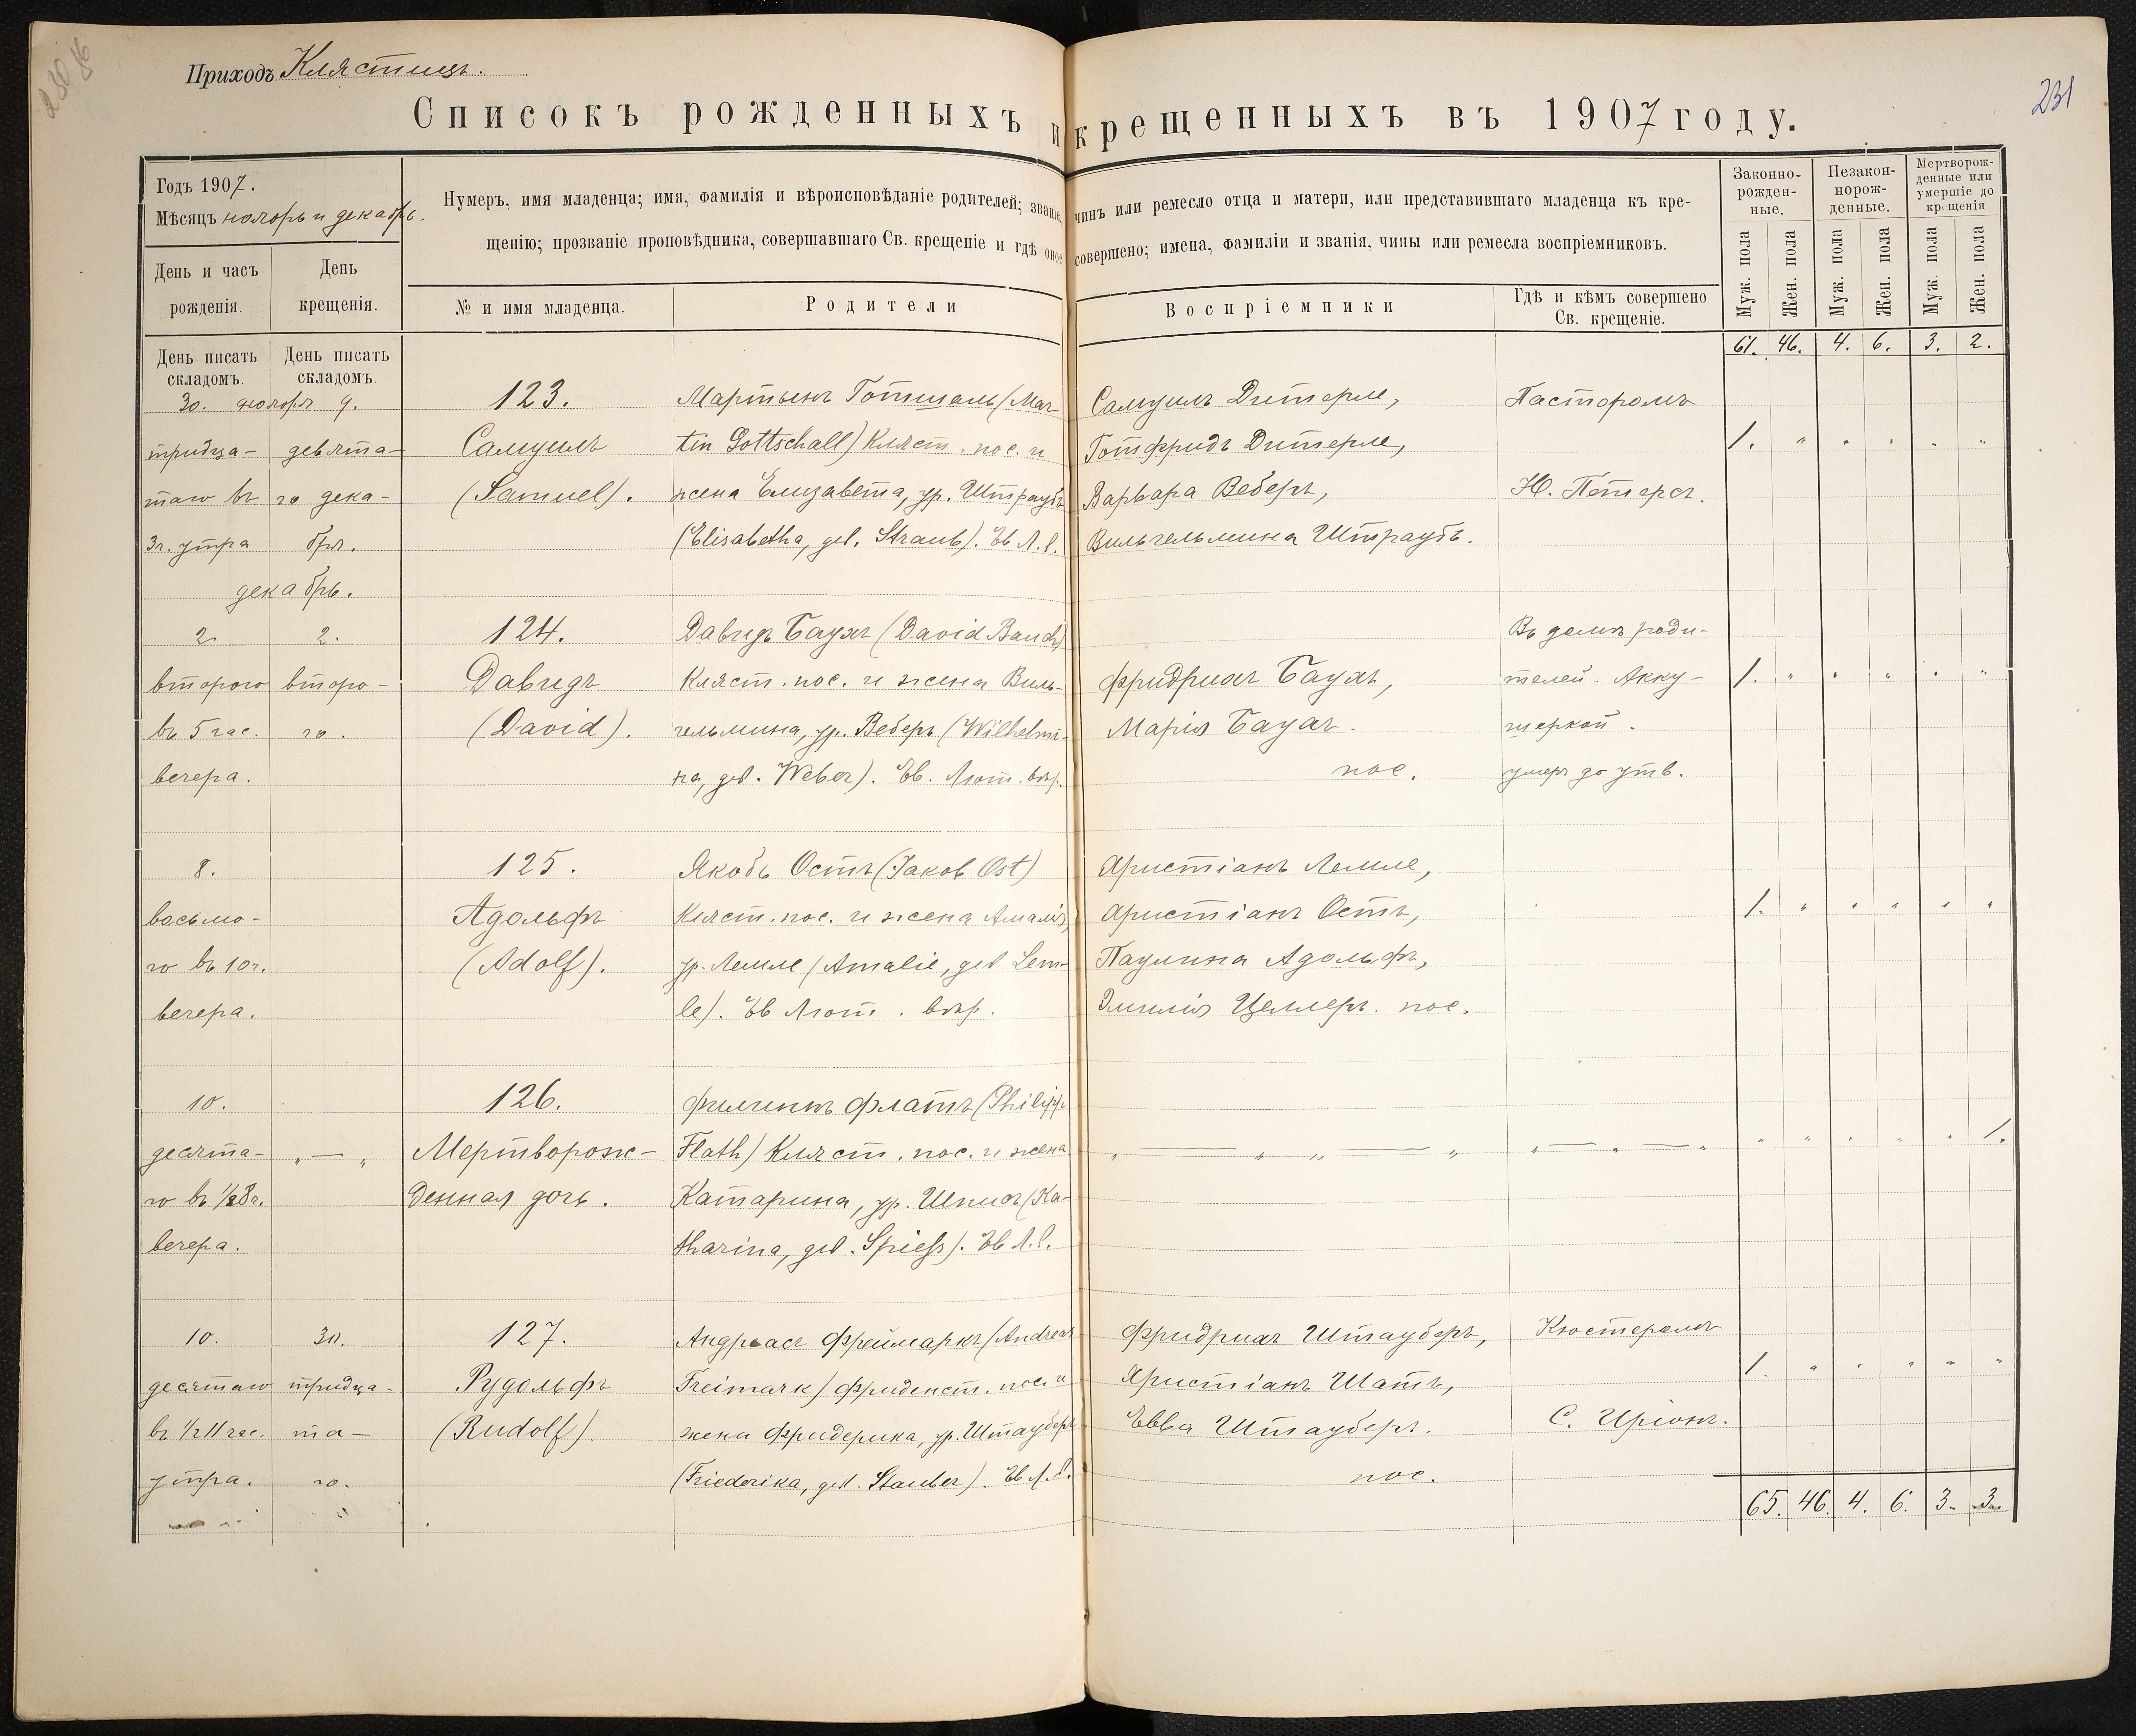 Приходъ Клястицъ.
231
Списокъ рожденныхъ и крещенныхъ въ 1907 году.
Годъ 1907.
Мѣсяцъ ноябрь и декабрь.
Нумеръ, имя младенца; имя, фамилія и вѣроисповѣданіе родителей; званіе, чинъ или ремесло отца и матери, или представившаго младенца къ кре-
щенію; прозваніе проповѣдника, совершавшаго Св. крещеніе и гдѣ оное совершено; имена, фамиліи и званія, чины или ремесла воспріемниковъ.
Законно-
рожден-
ные.
Незакон-
норож-
денные.
Мертворож-
денные или
умершіе до
крещенія
Муж. пола
Жен. пола
Муж. пола
Жен. пола
Муж. пола
Жен. пола
День и часъ
рожденія.
День
крещенія.
№ и имя младенца.
Родители
Воспріемники
Гдѣ и кѣмъ совершено
Св. крещеніе.
День писать
складомъ.
День писать
складомъ.
61. 46. 4. 6. 3. 2.
30. ноября 9.
тридца-
таго въ
3 ч. утра
девята-
го дека-
бря.
123.
Самуилъ
(Samuel).
Мартынъ Готшаль (Mar-
tin Gottschall) Кляст. пос. и
жена Елизавета, ур. Штраубъ
(Elisabetha, geb. Straub). Ев. Л. в.
Самуилъ Дитерле,
Готфридъ Дитерле,
Варвара Веберъ,
Вильгельмина Штраубъ.
Пасторомъ
Ю. Петерсъ.
1. " " " " "
декабрь.
2.
второго
въ 5 час.
вечера.
2.
второ-
го.
124.
Давидъ
(David).
Давидъ Баухъ (David Bauch)
Кляст. пос. и жена Виль-
гельмина, ур. Веберъ (Wilhelmi-
na, geb. Weber). Ев. Лют. вѣр.
Фридрихъ Баухъ,
Марія Баухъ.
пос.
Въ домѣ роди-
телей. Акку-
шеркой.
умеръ до утв.
1. " " " " "
8.
восьмо-
го въ 10 ч.
вечера.
125.
Адольфъ
(Adolf).
Якобъ Остъ (Jakob Ost)
Кляст. пос. и жена Амалія,
ур. Лемле (Amalie, geb Lem-
le). Ев Лют. вѣр.
Христіанъ Лемле,
Христіанъ Остъ,
Паулина Адольфъ,
Эмилія Целлеръ. пос.
1. " " " " "
10.
десята-
го въ ½8 ч.
вечера.
" — "
126.
Мертворож-
денная дочь.
Филиппъ Флатъ (Philipp
Flath) Кляст. пос. и жена
Катарина, ур. Шписъ (Ka-
tharina, geb. Spieß). Ев Л. в.
" — " " — "
" — " — "
" " " " " 1.
10.
десятаго
въ ½11 час.
утра.
30.
тридца-
та-
го.
127.
Рудольфъ
(Rudolf).
Андреасъ Фреймаркъ (Andreas
Freimark) Фриденст. пос. и
жена Фридерика, ур. Штауберъ
(Friederika, geb. Stauber). Ев Л. в.
Фридрихъ Штауберъ,
Христіанъ Шатъ,
Евва Штауберъ.
пос.
Кюстеромъ
С. Иріонъ.
1. " " " " "
65. 46. 4. 6. 3. 3.